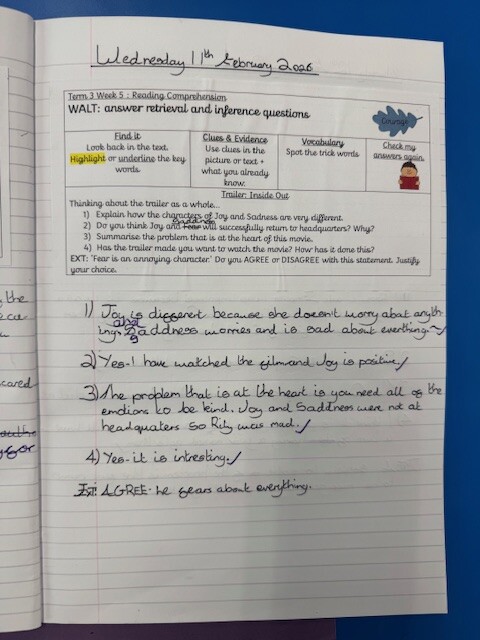 Wednesday 11th February 2026
Term 3 Week 5 : Reading Comprehension
WALT: answer retrieval and inference questions
Courage
Find it
Look back in the text.
Highlight or underline the key
words.
Clues & Evidence
Use clues in the
picture or text +
what you already
know.
Vocabulary
Spot the trick words
Check my
answers again.
Trailer: Inside Out
Thinking about the trailer as a whole...
1) Explain how the characters of Joy and Sadness are very different.
Saddness
2) Do you think Joy and Fear will successfully return to headquarters? Why?
3) Summarise the problem that is at the heart of this movie.
4) Has the trailer made you want to watch the movie? How has it done this?
EXT: 'Fear is an annoying character.' Do you AGREE or DISAGREE with this statement. Justify
your choice.
1) Joy is different because she doesn't worry abat anyth
and
ing. Saddness worries and is sad about everthing.
2) Yes-I have watched the film and Joy is positive
3) The problem that is at the heart is you need all of the
emotions to be kind. Joy and Saddness were not at
headquaters so Rily was mad.
4) Yes-it is intresting.
Ext: AGREE- he fears about everything.
the
cared